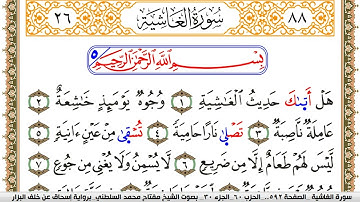 ٨٨ سُورَةُ الغَاشِيَةِ ٢٦
بِسْمِ اللَّهِ الرَّحْمَٰنِ الرَّحِيمِ
هَلْ أَتَىٰكَ حَدِيثُ الْغَٰشِيَةِ ١ وُجُوهٌ يَوْمَئِذٍ خَٰشِعَةٌ ٢
عَامِلَةٌ نَّاصِبَةٌ ٣ تَصْلَىٰ نَارًا حَامِيَةً ٤ تُسْقَىٰ مِنْ عَيْنٍ ءَانِيَةٍ ٥
لَّيْسَ لَهُمْ طَعَامٌ إِلَّا مِن ضَرِيعٍ ٦ لَّا يُسْمِنُ وَلَا يُغْنِي مِن جُوعٍ ٧
سورة الغاشية . الصفحة ٥٩٢ . الحزب ٦٠ . الجزء ٣٠ . بصوت الشيخ مفتاح محمد السلطني . برواية إسحاق عن خلف البزار